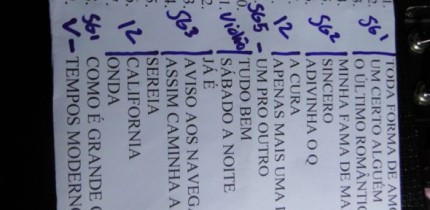 TODA FORMA DE AMO
S61 UM CERTO ALGUÉM
2. O ÚLTIMO ROMÂNTIC
MINHA FAMA DE MA
S62 SINCERO
ADIVINHA O Q
12 A CURA
APENAS MAIS UMA
S65 - UM PRO OUTRO
TUDO BEM
SÁBADO A NOITE
2. JÁ É
S63 AVISO AOS NAVEGA
ASSIM CAMINHA A
SEREIA
12 CALIFORNIA
ONDA
S61 COMO É GRANDE
V - TEMPOS MODERN